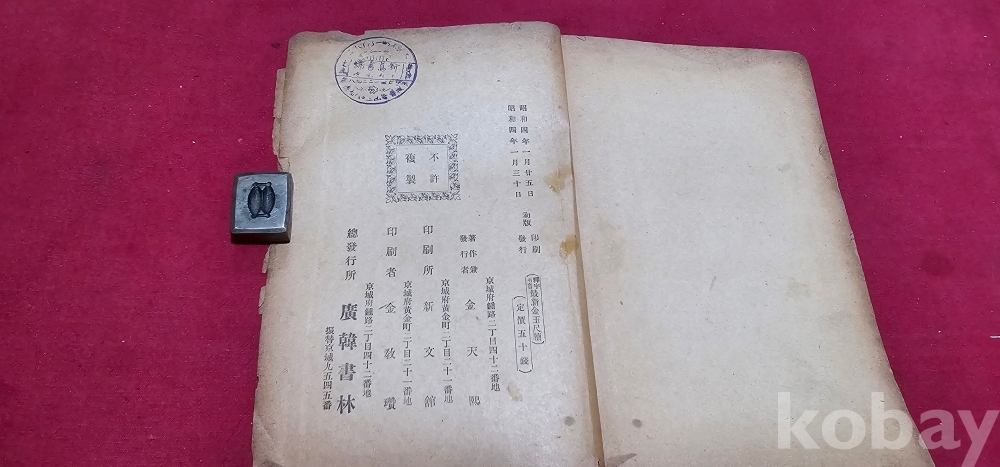 昭和四年一月廿五日 印刷
昭和四年一月三十日 初版 發行
最新金玉尺牘
(定價五十錢)
京城府鐘路二丁目四十二番地
著作兼發行者 金天熙
京城府黃金町二丁目二十一番地
印刷所 新文館
京城府黃金町二丁目二十一番地
印刷者 金敎瓚
京城府鐘路二丁目四十二番地
總發行所 廣韓書林
振替京城九五四五番
不許
複製
kobay